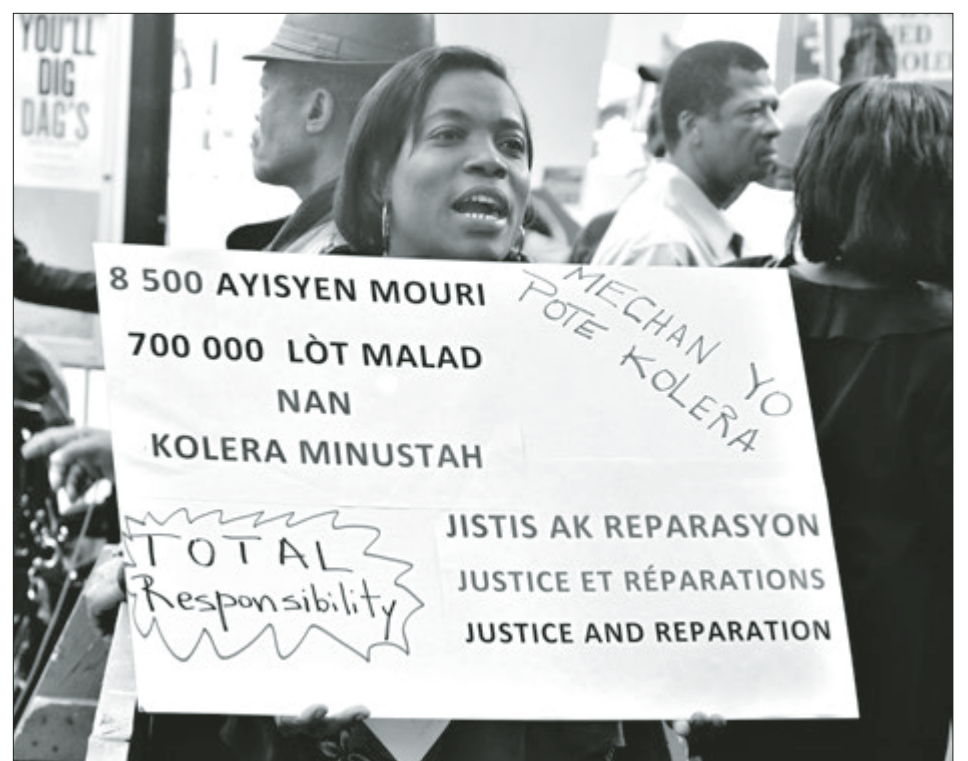 YOU'LL
DIG
DAG'S
ED
8 500 AYISYEN MOURI
700 000 LÒT MALAD
NAN
KOLERA MINUSTAH
MECHAN YO
POTE KOLERA
TOTAL
Responsibility
JISTIS AK REPARASYON
JUSTICE ET RÉPARATIONS
JUSTICE AND REPARATION